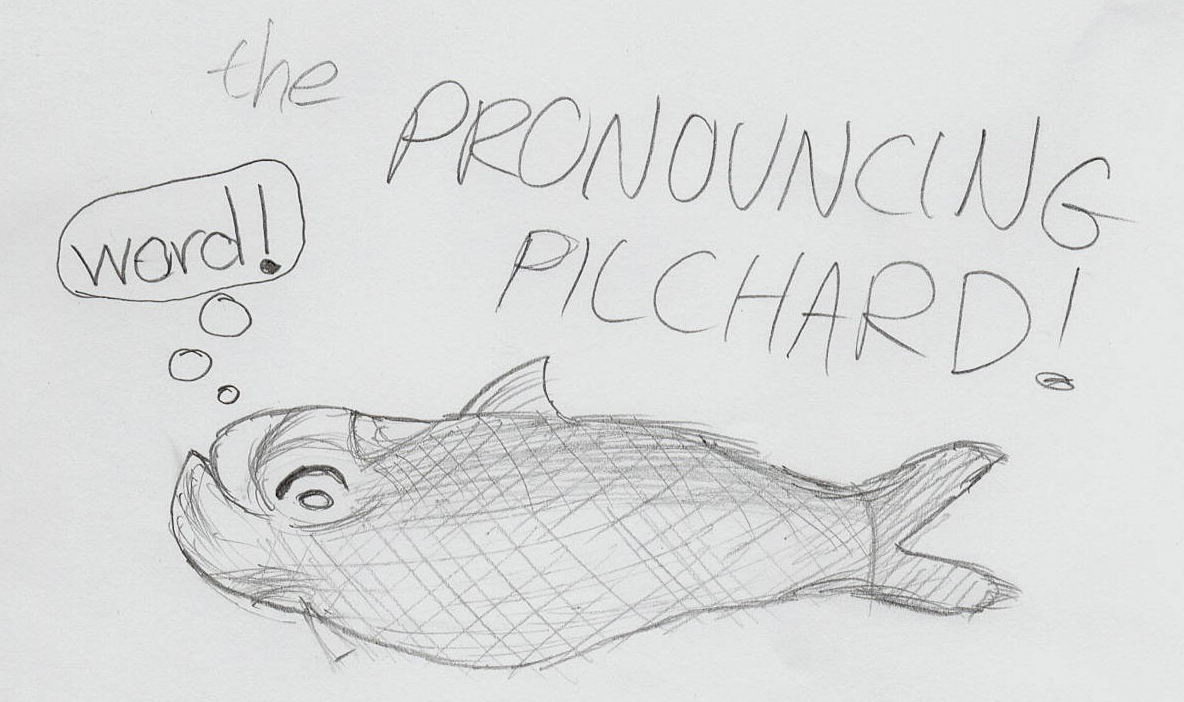 the
PRONOUNCING
PILCHARD!
word!